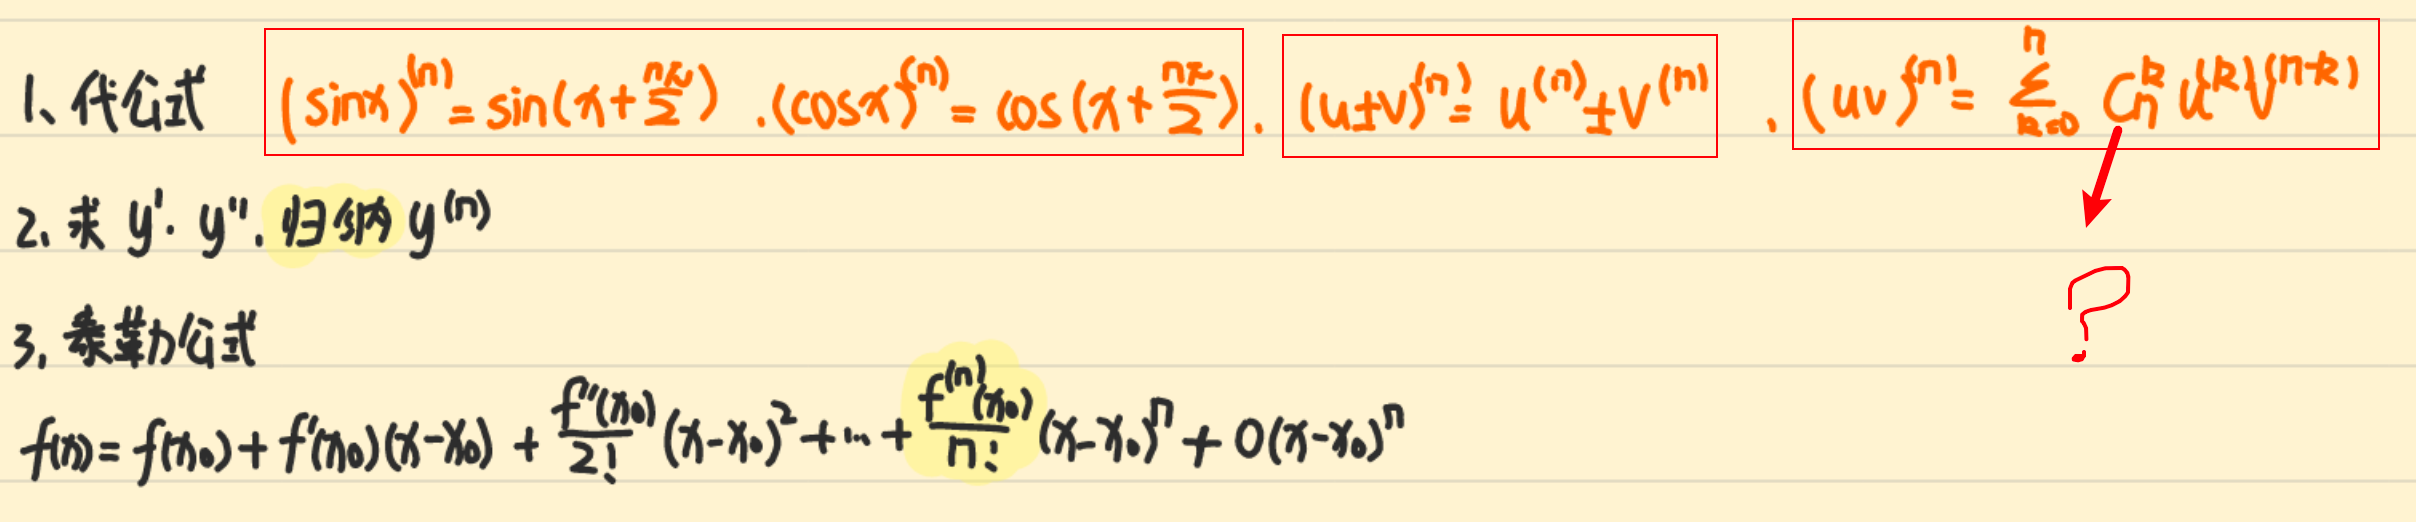 1、代公式 (sinx)^(n) = sin(x+nπ/2) .(cosx)^(n) = cos(x+nπ/2). (u±v)^(n) = u^(n)±v^(n) 、(uv)^(n) = Σ_{k=0}^{n} C_n^k u^(k)v^(n-k)
2、求 y'. y''. 归纳 y^(n)
?
3、泰勒公式
f(x) = f(x₀)+f'(x₀)(x-x₀) + f''(x₀)/2! (x-x₀)² +…+ f^(n)(x₀)/n! (x-x₀)^n + o(x-x₀)^n